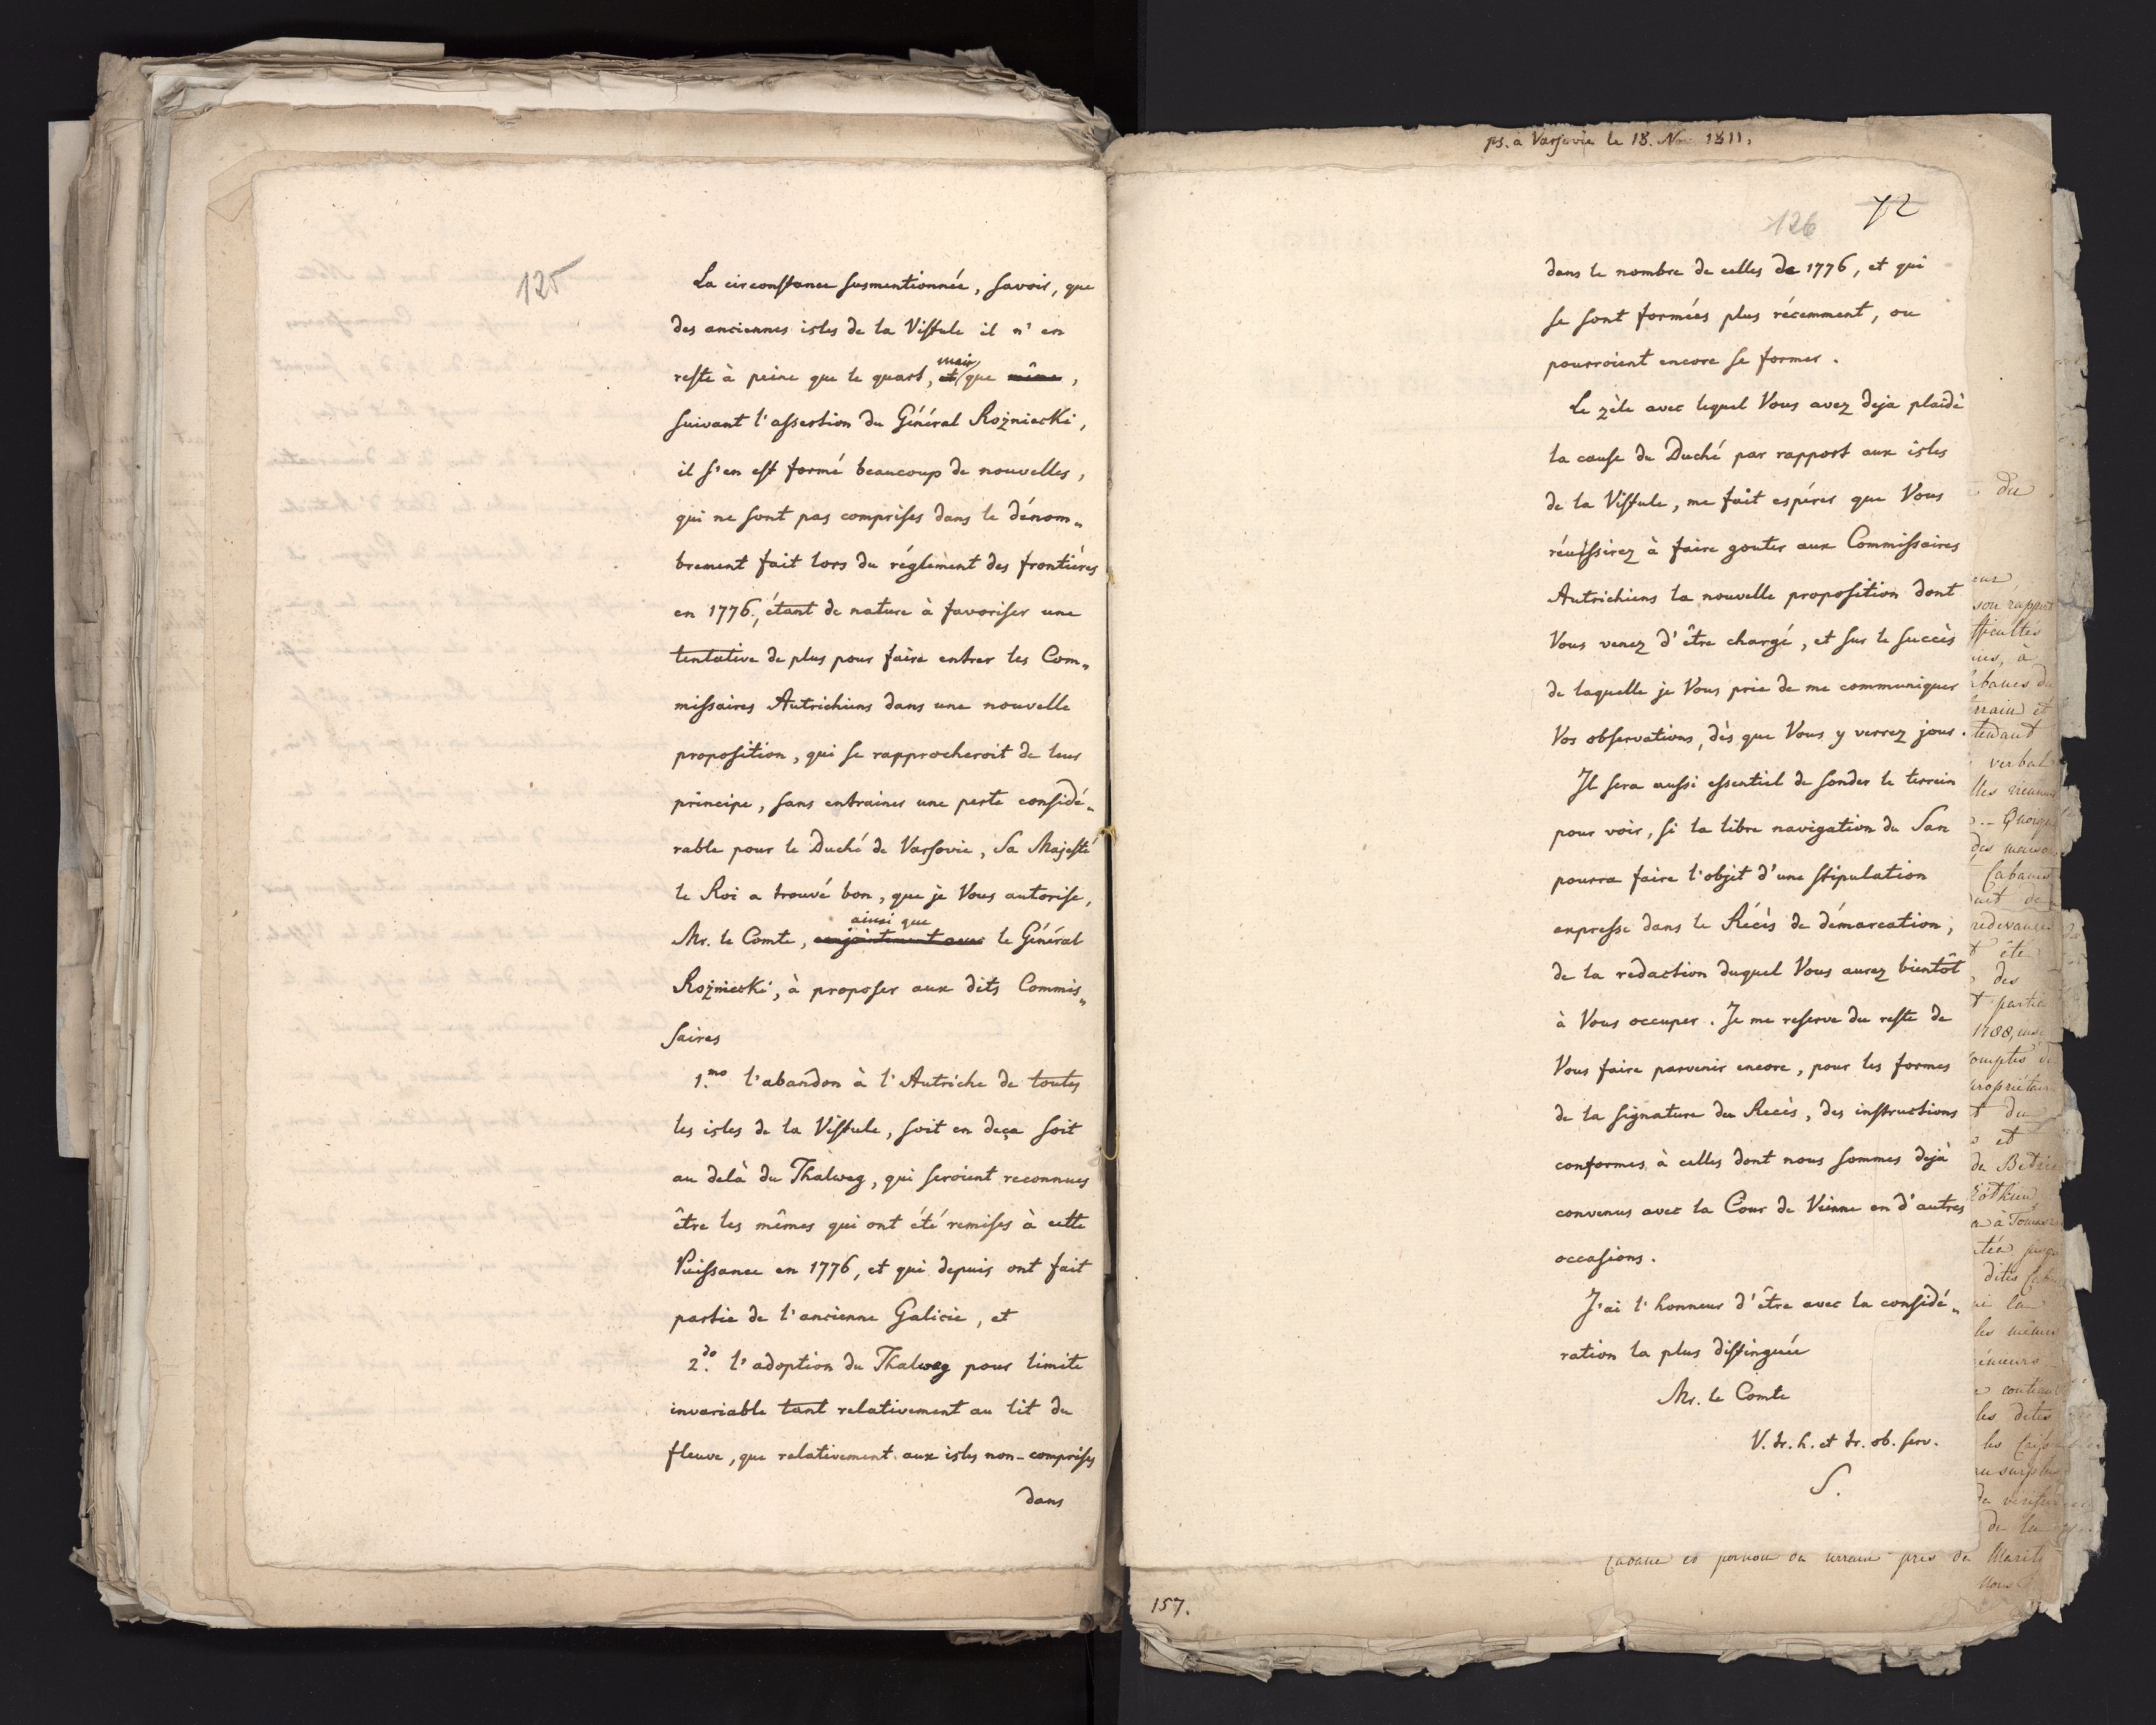 125
La circonstance susmentionnée, savoir, que
des anciennes isles de la Vistule il n'en
mais
reste à peine que le quart, et que même,
suivant l'assertion du Général Rożniecki,
il s'en est formé beaucoup de nouvelles,
qui ne sont pas comprises dans le dénom„
brement fait lors du réglement des frontiéres
en 1776, étant de nature à favoriser une
tentative de plus pour faire entrer les Com„
missaires Autrichiens dans une nouvelle
proposition, qui se rapprocheroit de leur
principe, sans entrainer une perte considé„
rable pour le Duché de Varsovie, Sa Majesté
le Roi a trouvé bon, que je Vous autorise,
ainsi que
Mr. le Comte, conjointement avec le Général
Rożniecki, à proposer aux dits Commis„
saires
1.mo l'abandon à l'Autriche de toutes
les isles de la Vistule, soit en deça soit
au delà du Thalweg, qui seroient reconnues
être les mêmes qui ont été remises à cette
Puissance en 1776, et qui depuis ont fait
partie de l'ancienne Galicie, et
2.do l'adoption du Thalweg pour limite
invariable tant relativement au lit du
fleuve, que relativement aux isles non-comprises
dans
ps. à Varsovie le 18. Nov. 1811.
72
126
dans le nombre de celles de 1776, et qui
se sont formées plus récemment, ou
pourroient encore se former.
Le zèle avec lequel Vous avez deja plaidé
la cause du Duché par rapport aux isles
de la Vistule, me fait espérer que Vous
réussirez à faire gouter aux Commissaires
Autrichiens la nouvelle proposition dont
Vous venez d'être chargé, et sur le succès
de laquelle je Vous prie de me communiquer
Vos observations, dès que Vous y verrez jour.
Il sera aussi essentiel de sonder le terrein
pour voir, si la libre navigation du San
pourra faire l'objet d'une stipulation
expresse dans le Récès de démarcation,
de la redaction duquel Vous aurez bientôt
à Vous occuper. Je me reserve du reste de
Vous faire parvenir encore, pour les formes
de la signature du Recès, des instructions
conformes à celles dont nous sommes dejà
convenus avec la Cour de Vienne en d'autres
occasions.
J'ai l'honneur d'être avec la considé„
ration la plus distinguée
Mr. le Comte
V. tr. h. et tr. ob. serv.
S.
du
son rapport
verbal
Cabanes
été
des
partie
1788,
du
et
à
la
les mêmes
les dites
de la
près de
157.